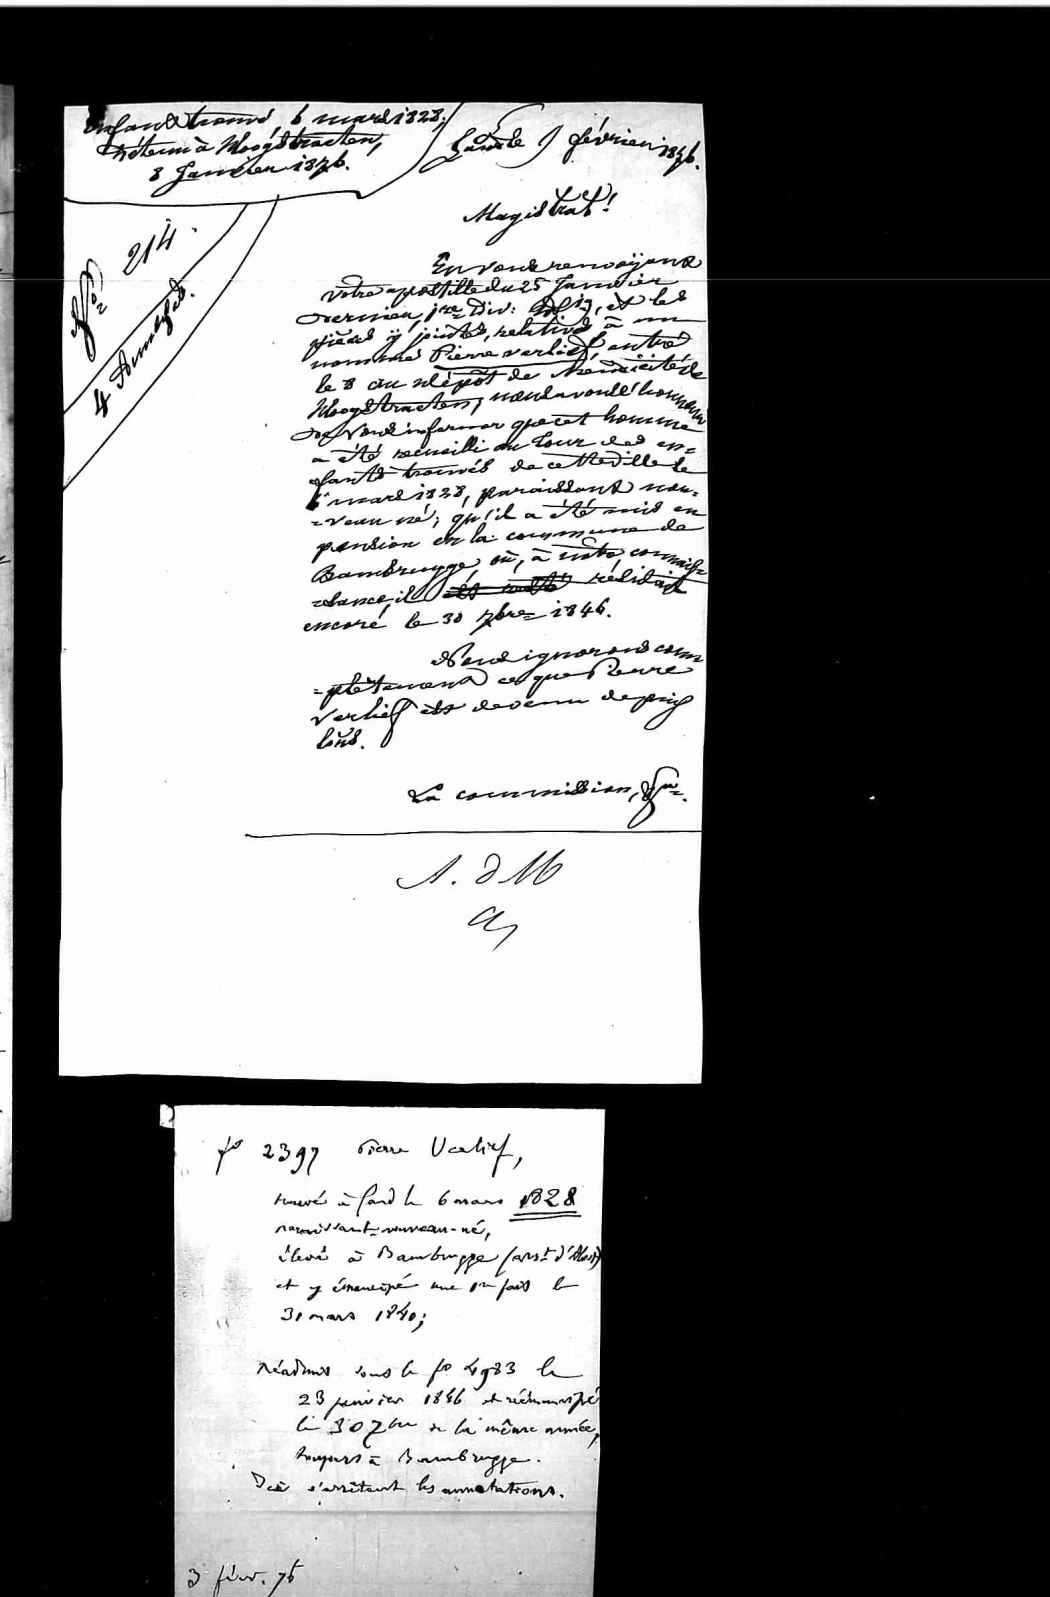 Enfant trouvé 6 mars 1828.
détenu à Hoogstraeten,
8 Janvier 1876.
Gand le 9 février 1876.
Magistrat!
N° 214.
4 Annexes.
En vous renvoyant
votre apostille du 25 Janvier
dernier, 1re Div: et les
pièces y jointes, relatives à un
nommé Pierre Verlief, entré
le 8 au dépôt de Mendicité de
Hoogstraeten, nous avons l'honneur
de vous informer que cet homme
a été recueilli au tour des en=
fants trouvés de cette ville le
6 mars 1828, paraissant nou=
=veau né; qu'il a été mis en
pension en la commune de
Bambrugge, où, à notre connais=
=sance, il est resté résidait
encore le 30 7bre 1846.
Nous ignorons com
=plètement ce que Pierre
Verlief est devenu depuis
lors.
La commission,
A. d M
f° 2397 Pierre Verlief,
trouvé à Gand le 6 mars 1828
paraissant nouveau-né,
élevé à Bambrugge (arrt d'Alost)
et y émancipé une 1re fois le
31 mars 1840;
réadmis sous le f° 4983 le
23 janvier 1846 et réémancipé
le 30 7bre de la même année,
toujours à Bambrugge.
Là s'arrêtent les annotations.
3 févr. 76